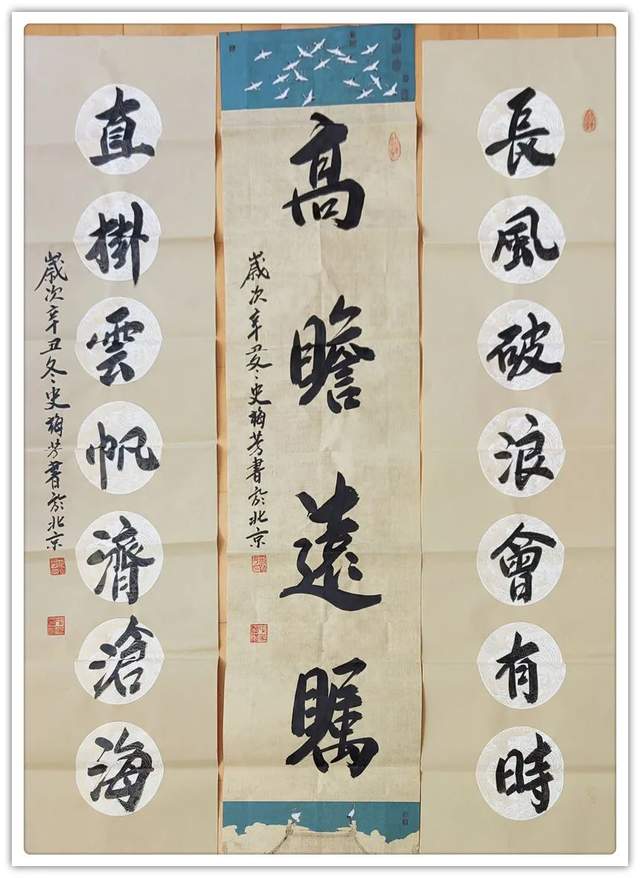 長風破浪會有時
高瞻遠矚
歲次辛丑冬史梅芳書於北京
直掛雲帆濟滄海
歲次辛丑冬史梅芳書於北京